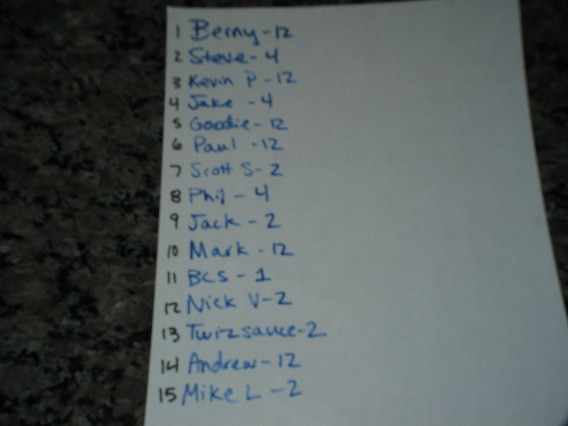 1 Berny - 12
2 Steve - 4
3 Kevin P - 12
4 Jake - 4
5 Goodie - 12
6 Paul - 12
7 Scott S - 2
8 Phil - 4
9 Jack - 2
10 Mark - 12
11 BCS - 1
12 Nick V - 2
13 Twizsauce - 2
14 Andrew - 12
15 Mike L - 2